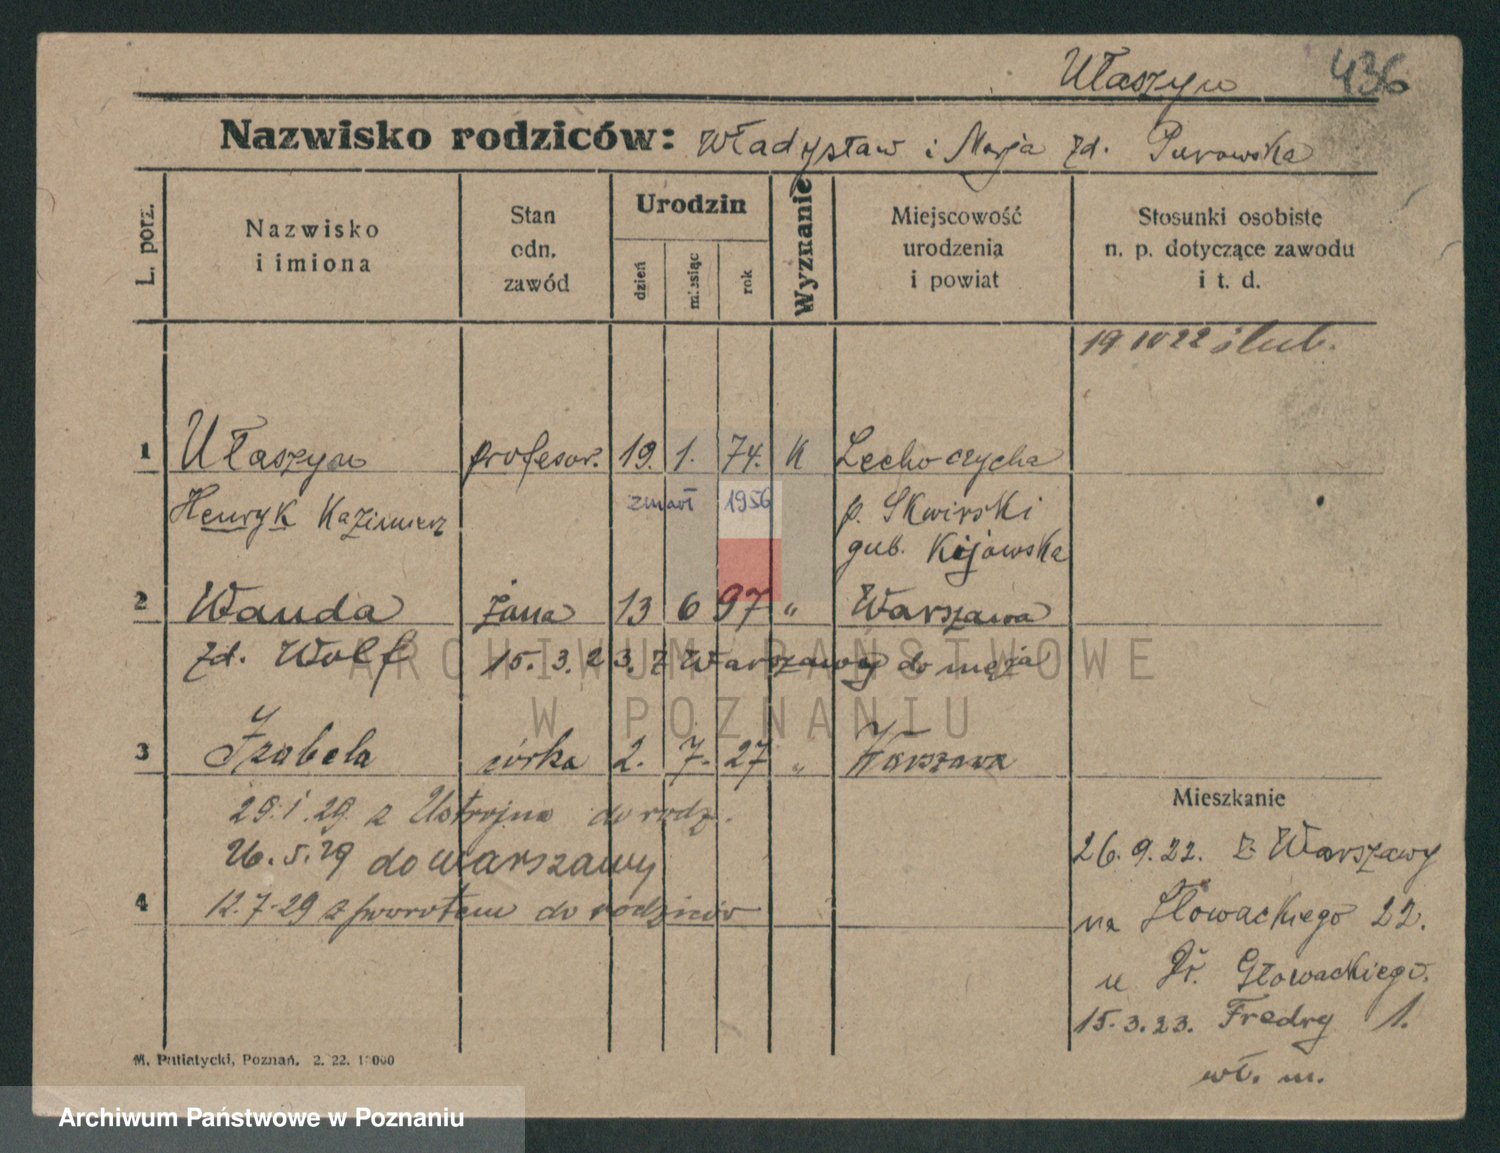 Ułaszyn 436
Nazwisko rodziców: Władysław i Marja zd. Purowska
L. porz.
Nazwisko
i imiona
Stan
odn.
zawód
Urodzin
dzień
miesiąc
rok
Wyznanie
Miejscowość
urodzenia
i powiat
Stosunki osobiste
n. p. dotyczące zawodu
i t. d.
19. IV 22 ślub.
1 Ułaszyn profesor. 19. 1. 74. K Lechoczycha
Henryk Kazimierz zmarł 1956 p. Skwirski
gub. Kijowska
2 Wanda żona 13 6 97 " Warszawa
zd. Wolf 15. 3. 23. z Warszawy do męża
ARCHIWUM PAŃSTWOWE
W POZNANIU
3 Izabela córka 2. 7. 27 " Warszawa
29. 1. 29. z Ustrojna do rodz.
26. 5. 29 do Warszawy
4 12. 7. 29 z powrotem do rodziców
Mieszkanie
26. 9. 22. z Warszawy
na Słowackiego 22.
u Dr. Głowackiego.
15. 3. 23. Fredry 1.
wł. m.
M. Putiatycki, Poznań. 2. 22. 1000
Archiwum Państwowe w Poznaniu